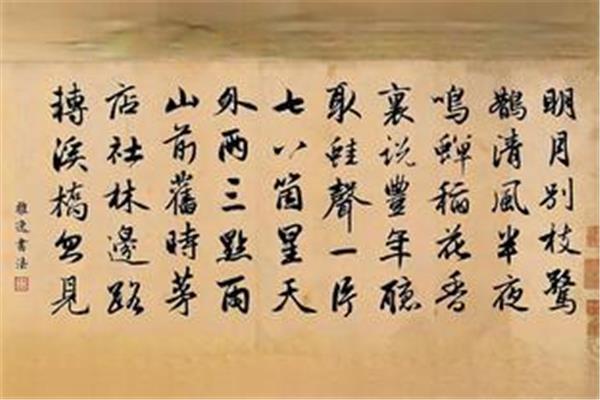 明月别枝驚
鵲清風半夜
鳴蟬稻花香
裏说豐年聽
取蛙聲一片
七八箇星天
外兩三點雨
山前舊時茅
店社林邊路
轉溪橋忽見
雅逸書法